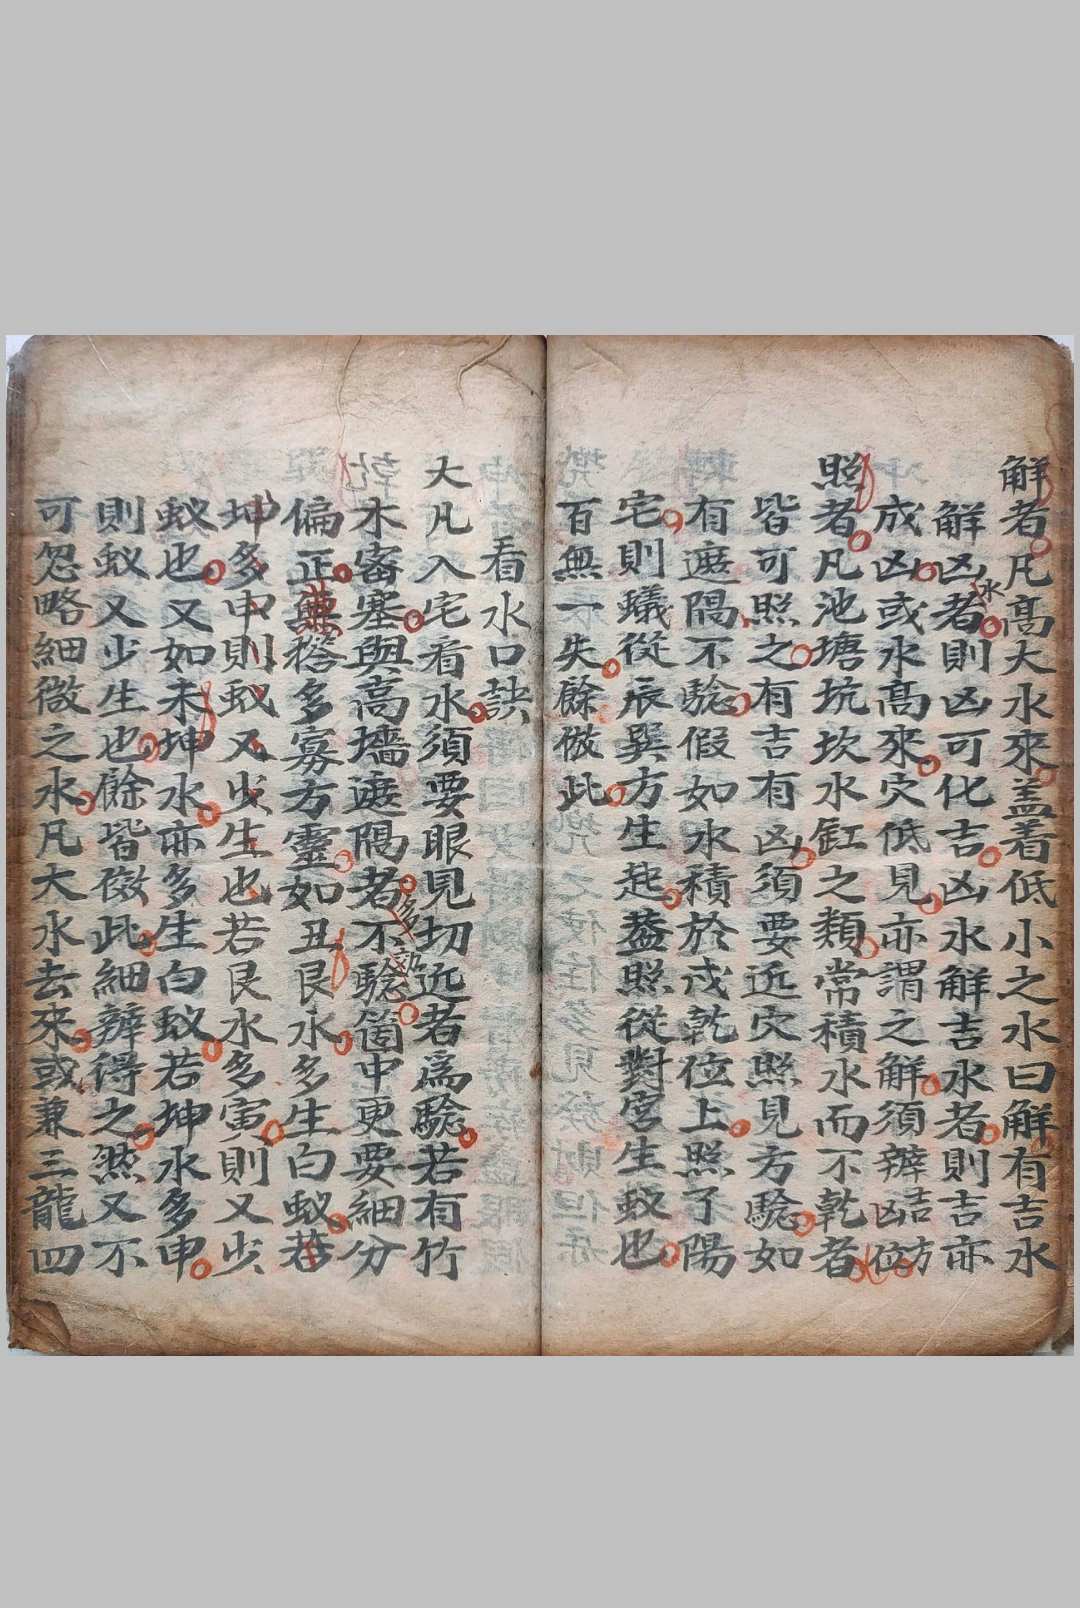 解者凡高大水來蓋着低小之水曰解有吉水
解凶水者則凶可化吉凶水解吉水者則吉亦
成凶或水高來穴低見亦謂之解須辨吉凶方位
照者凡池塘坑坎水缸之類常積水而不乾者
皆可照之有吉有凶須要近穴照見方驗如
有遮隔不驗假如水積於戌乾位上照了陽
宅則蟻從辰巽方生起蓋照從對宮生蚁也
百無一失餘倣此
看水口訣
大凡入宅看水須要眼見切近者為驗若有竹
木密塞與高墻遮隔者多不驗箇中更要細分
偏正兼搭多寡方靈如丑艮水多生白蚁若
坤多申則蚁又少生也若艮水多寅則又少
蚁也又如未坤水亦多生白蚁若坤水多申
則蚁又少生也餘皆倣此細辨得之然又不
可忽略細微之水凡大水去來或兼三龍四